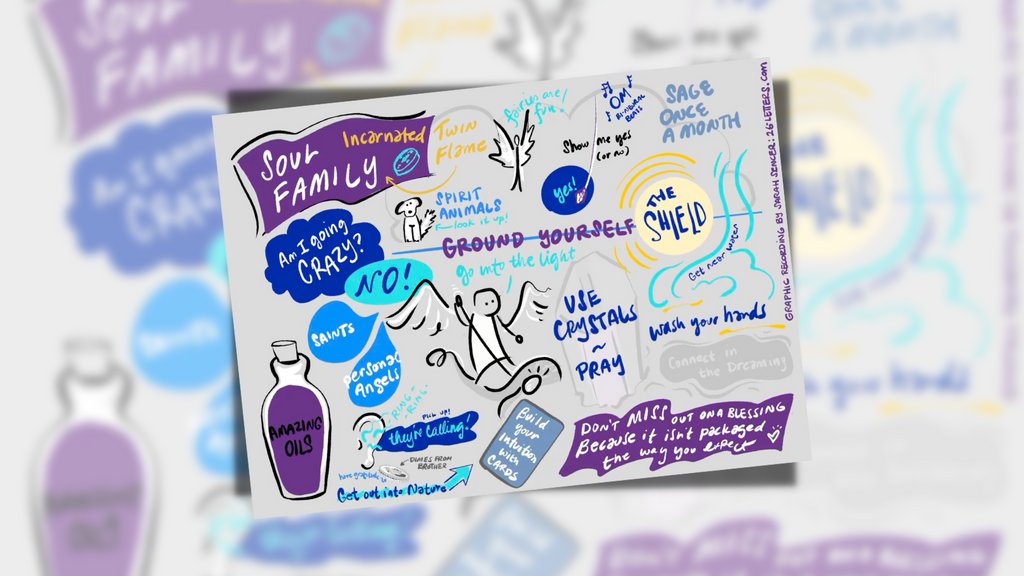 SOUL
FAMILY
Incarnated
TWIN
Flame
fairies are
fun!
OM
BINAURAL
BEATS
Show me yes
(or no)
yes!
SAGE
ONCE
A MONTH
SPIRIT
ANIMALS
look it up!
Am I going
CRAZY?
NO!
GROUND YOURSELF
go into the light
THE
SHIELD
Get near water
SAINTS
Personal
Angels
USE
CRYSTALS
~
PRAY
wash your hands
Connect in
the Dreaming
AMAZING
OILS
RING-
RING.
PICK UP!
they're calling!
DIMES FROM
BROTHER
have gratitude
Get out into Nature
Build
your
Intuition
with
CARDS
DON'T MISS OUT ON A BLESSING
Because it isn't packaged
the way you expect
GRAPHIC RECORDING BY SARAH SENCER: 26-LETTERS.com